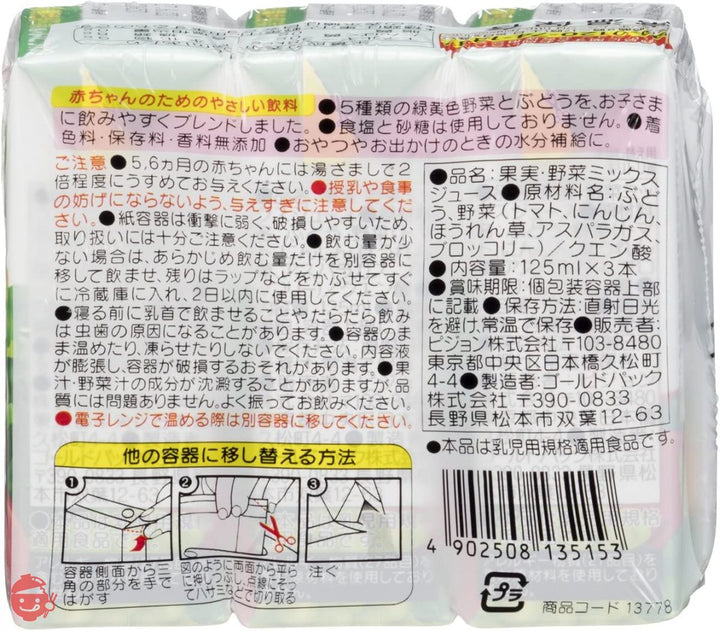 赤ちゃんのためのやさしい飲料 ●5種類の緑黄色野菜とぶどうを、お子さま
に飲みやすくブレンドしました。●食塩と砂糖は使用しておりません。●着
色料・保存料・香料無添加 ●おやつやお出かけのときの水分補給に。
ご注意 ●5,6ヵ月の赤ちゃんには湯ざましで2
倍程度にうすめてお与えください。●授乳や食事
の妨げにならないよう、与えすぎに注意してくだ
さい。●紙容器は衝撃に弱く、破損しやすいため、
取り扱いには十分ご注意ください。●飲む量が少
ない場合は、あらかじめ飲む量だけを別容器に
移して飲ませ、残りはラップなどをかぶせてすぐ
に冷蔵庫に入れ、2日以内に使用してください。
●寝る前に乳首で飲ませることやだらだら飲み
は虫歯の原因になることがあります。●容器のま
ま温めたり、凍らせたりしないでください。内容液
が膨張し、容器が破損するおそれがあります。●果
汁・野菜汁の成分が沈澱することがありますが、品
質には問題ありません。よく振ってお飲みください。
●電子レンジで温める際は別容器に移してください。
●品名:果実・野菜ミックス
ジュース●原材料名:ぶど
う、野菜(トマト、にんじん、
ほうれん草、アスパラガス、
ブロッコリー)/クエン酸
●内容量:125ml×3本
●賞味期限:個包装容器上部
に記載●保存方法:直射日光
を避け、常温で保存●販売者:
ピジョン株式会社〒103-8480
東京都中央区日本橋久松町
4-4●製造者:ゴールドパック
株式会社 〒390-0833
長野県松本市双葉12-63
●本品は乳児用規格適用食品です。
他の容器に移し替える方法
1
2
3
容器側面から三
角の部分を手で
はがす
図のように両面から平ら
に押しつぶし、点線にそっ
てハサミなどで切り取る
注ぐ
4 902508 135153
プラ
商品コード 13778